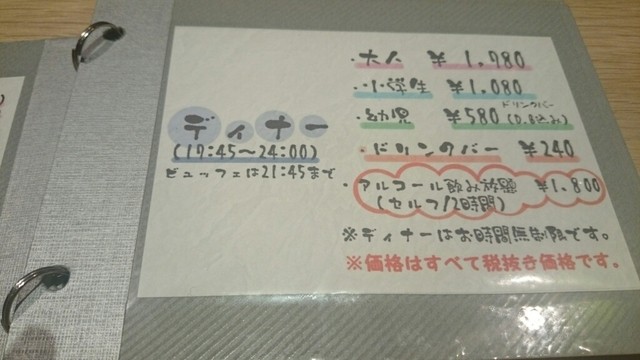 ディナー
(17:45～24:00)
ビュッフェは21:45まで
・大人 ¥1,980
・小学生 ¥1,080
・幼児 ¥580 (D.B込み)
ドリンクバー
・ドリンクバー ¥240
・アルコール飲み放題 ¥1,800
(セルフ/2時間)
※ディナーはお時間無制限です。
※価格はすべて税抜き価格です。